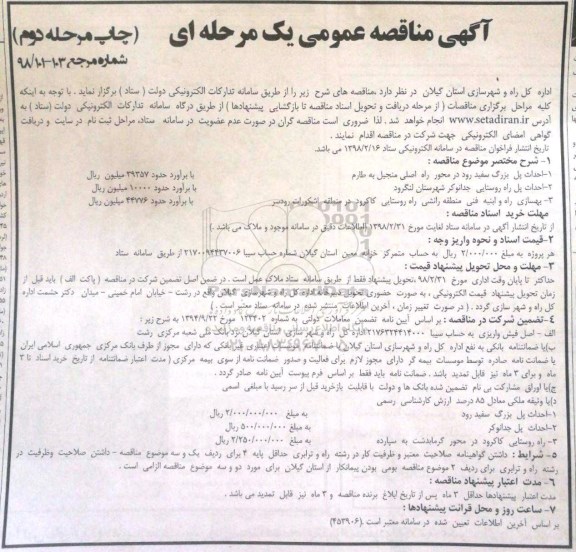 آگهی مناقصه عمومی یک مرحله ای
(چاپ مرحله دوم)
شماره مرجع ۹۸/۱۰۱-۱۰۳
اداره کل راه و شهرسازی استان گیلان در نظر دارد ،مناقصه های شرح زیر را از طریق سامانه تدارکات الکترونیکی دولت ( ستاد ) برگزار نماید . با توجه به اینکه
کلیه مراحل برگزاری مناقصات ( از مرحله دریافت و تحویل اسناد مناقصه تا بازگشایی پیشنهادها ) از طریق درگاه سامانه تدارکات الکترونیکی دولت (ستاد ) به
آدرس www.setadiran.ir انجام خواهد شد . لذا ضروری است مناقصه گران در صورت عدم عضویت در سامانه ستاد، مراحل ثبت نام در سایت و دریافت
گواهی امضای الکترونیکی جهت شرکت در مناقصه اقدام نمایند .
تاریخ انتشار فراخوان مناقصه در سامانه الکترونیکی ستاد ۱۳۹۸/۲/۱۶ می باشد.
۱- شرح مختصر موضوع مناقصه :
۱-احداث پل بزرگ سفید رود در محور راه اصلی منجیل به طارم با برآورد حدود ۳۹۳۵۷ میلیون ریال
۲-احداث پل راه روستایی جدانوکر شهرستان لنگرود با برآورد حدود ۱۰۰۰۰ میلیون ریال
۳- بهسازی راه و ابنیه فنی منطقه رانشی راه روستایی کاکرود در منطقه اشکورات رودسر با برآورد حدود ۴۴۷۷۶ میلیون ریال
مهلت خرید اسناد مناقصه :
از تاریخ انتشار آگهی در سامانه ستاد لغایت مورخ ۱۳۹۸/۲/۲۱ (اطلاعات دقیق در سامانه موجود و ملاک می باشد .)
۲-قیمت اسناد و نحوه واریز وجه :
هر پروژه به مبلغ ۲/۰۰۰/۰۰۰ ریال به حساب متمرکز خزانه معین استان گیلان شماره حساب سیبا ۲۱۷۰۰۹۴۴۳۷۰۰۶ از طریق سامانه ستاد
۳- مهلت و محل تحویل پیشنهاد قیمت :
حداکثر تا پایان وقت اداری مورخ ۹۸/۲/۳۱ ،تحویل پیشنهاد فقط از طریق سامانه ستاد ملاک عمل است . در ضمن اصل تضمین شرکت در مناقصه ( پاکت الف ) باید قبل از
زمان تحویل پیشنهاد قیمت الکترونیکی ، به صورت حضوری تحویل دبیرخانه اداره کل راه و شهرسازی گیلان واقع در رشت – خیابان امام خمینی – میدان دکتر حشمت اداره
کل راه و شهر سازی گردد . ( در صورت تغییر زمان ، آخرین اطلاعات منتشر شده در سامانه ستاد معتبر است .)
۴-تضمین شرکت در مناقصه : بر اساس آیین نامه تضمین معاملات دولتی به شماره ۱۲۳۴۰۲ مورخ ۱۳۹۴/۹/۲۲ به شرح زیر :
الف – اصل فیش واریزی به حساب سیبا ۲۱۷۶۳۲۴۴۱۴۰۰۰ اداره کل راه و شهر سازی استان گیلان نزد بانک ملی شعبه مرکزی رشت
ب)یا ضمانتنامه بانکی به نفع اداره کل راه و شهرسازی استان گیلان یا ضمانتنامه های صادره از سوی موسسات اعتباری غیربانکی که دارای مجوز از طرف بانک مرکزی جمهوری اسلامی ایران
یا ضمانت نامه صادره توسط موسسات بیمه گر دارای مجوز لازم برای فعالیت و صدور ضمانت نامه از سوی بیمه مرکزی ( مدت اعتبار ضمانتنامه از تاریخ خرید اسناد تا ۳
ماه و برای ۳ ماه نیز قابل تمدید باشد . ضمانت نامه باید فقط بر اساس فرم پیوست آیین نامه صادر گردد .
ج)یا اوراق مشارکت بی نام تضمین شده بانک ها و دولت با قابلیت بازخرید قبل از سر رسید با مبلغی اسمی
د)یا وثیقه ملکی معادل ۸۵ درصد ارزش کارشناسی رسمی
۱-احداث پل بزرگ سفید رود به مبلغ ۲/۰۰۰/۰۰۰/۰۰۰ ریال
۲-احداث پل جدانوکر به مبلغ ۵۰۰/۰۰۰/۰۰۰ ریال
۳- راه روستایی کاکرود در محور گرمابدشت به سپارده به مبلغ ۲/۲۵۰/۰۰۰/۰۰۰ ریال
۵- شرایط : داشتن گواهینامه صلاحیت معتبر و ظرفیت کار در رشته راه و ترابری حداقل پایه ۴ برای ردیف یک و سه موضوع مناقصه – داشتن صلاحیت وظرفیت در
رشته راه و ترابری برای ردیف ۲ موضوع مناقصه بومی بودن پیمانکار از استان گیلان برای مورد دو و سه موضوع مناقصه الزامی است .
۶- مدت اعتبار پیشنهاد مناقصه :
مدت اعتبار پیشنهادها حداقل ۳ ماه پس از تاریخ ابلاغ برنده مناقصه و ۳ ماه نیز قابل تمدید می باشد .
۷- ساعت روز و محل قرائت پیشنهادها :
بر اساس آخرین اطلاعات تعیین شده در سامانه معتبر است.(۴۵۳۹۰۶)